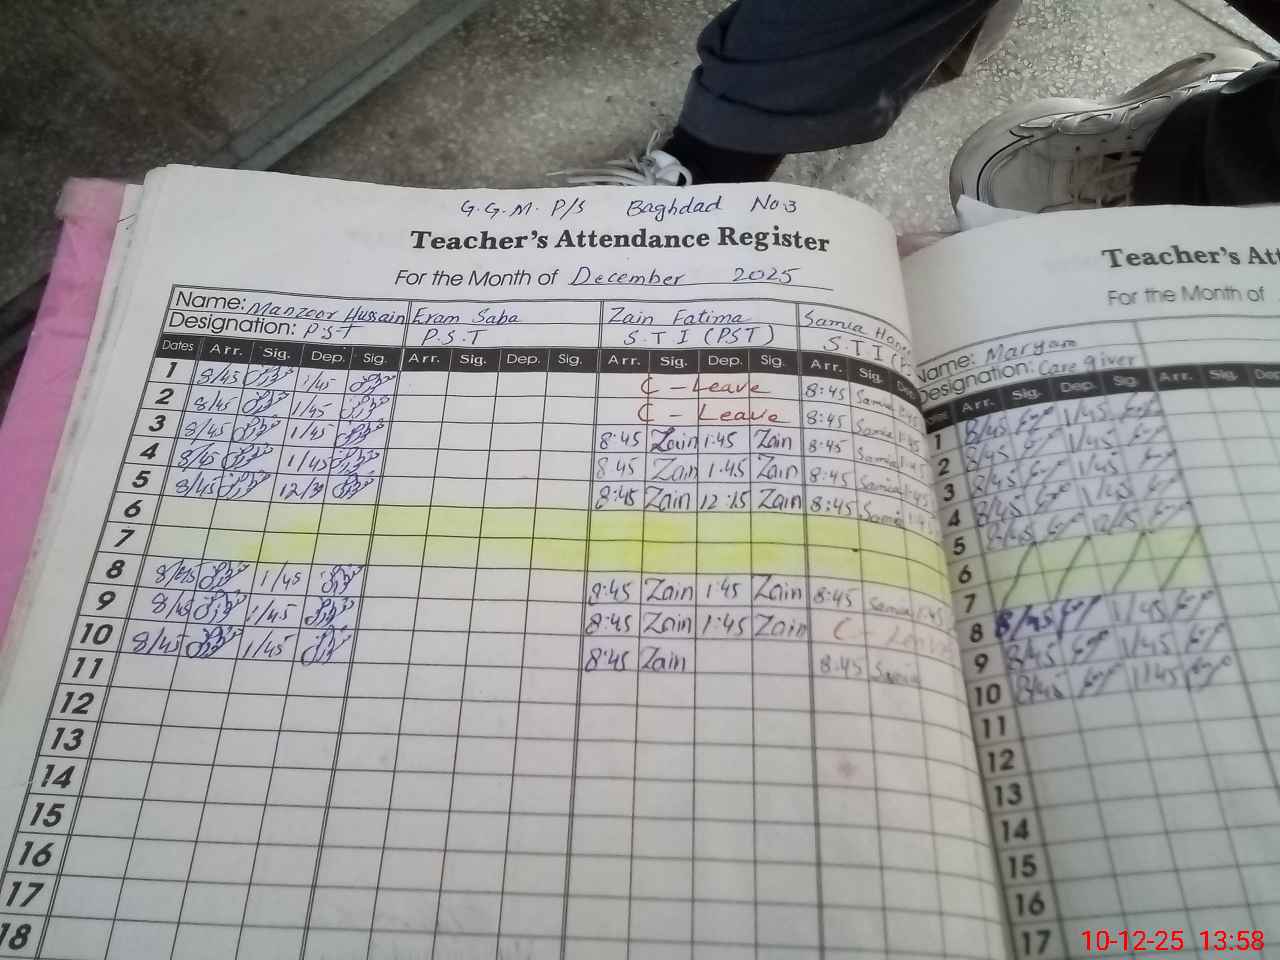 G.G.M. P/S Baghdad No.3
Teacher's Attendance Register
For the Month of December 2025
Name: Manzoor Hussain Eram Saba Zain Fatima Samia
Designation: P.S.T P.S.T S.T I (PST) S.T.I
Dates Arr. Sig. Dep. Sig. Arr. Sig. Dep. Sig. Arr. Sig. Dep. Sig. Arr. Sig.
1 8/45 1/45 C - Leave 8:45 Samia
2 8/45 1/45 C - Leave 8:45 Samia
3 8/45 1/45 8:45 Zain 1:45 Zain 8:45 Samia
4 8/45 1/45 8:45 Zain 1:45 Zain 8:45 Samia
5 8/45 8:45 Zain 12:15 Zain 8:45 Samia
6
7
8 1/45 8:45 Zain 1:45 Zain 8:45 Samia 1:45
9 8/45 1/45 8:45 Zain 1:45 Zain C - Leave
10 8/45 1/45 8:45 Zain 8:45 Samia
11
12
13
14
15
16
17
18
Teacher's At
For the Month of
Name: Maryam
Designation: Care giver
Arr. Sig. Dep. Sig. Arr. Sig.
1 8/45 1/45
2 8/45 1/45
3 8/45 1/45
4 8/45 1/45
5 8/45 12/15
6
7
8 8/45 1/45
9 8/45 1/45
10 8/45 1/45
11
12
13
14
15
16
17
10-12-25 13:58